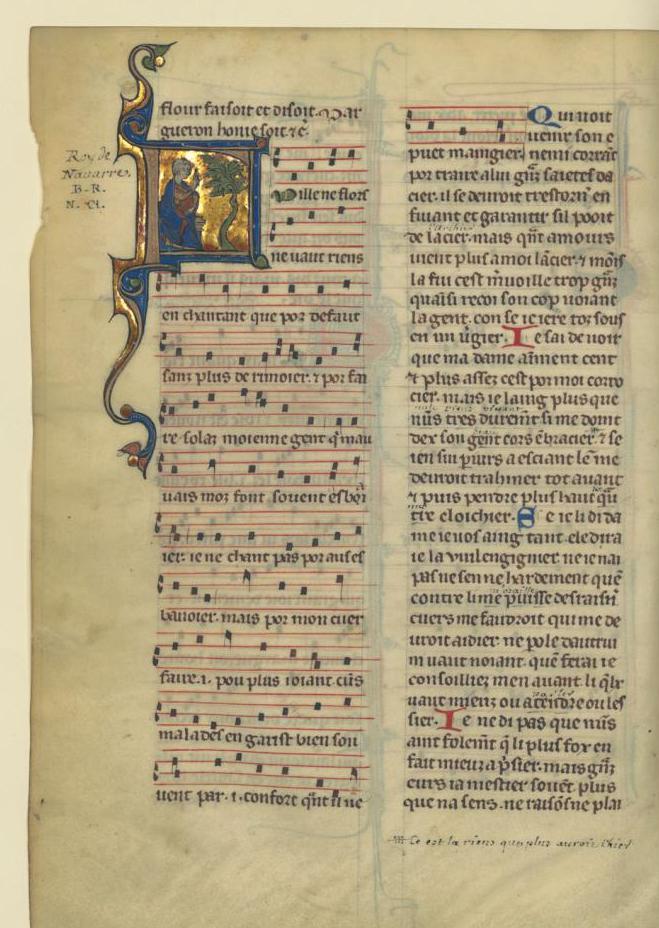 flour faisoit et disoit. Mar
gueron honie soit ⁊c̃.
Roy de
Navarre.
B. R.
N. Ct.
Fuille ne flors
ne vaut riens
en chantant que por defaut
sanz plus de rimoier. ⁊ por fai
re solaz moienne gent q̃ mau
uais moz font souent esbãi
ier. ie ne chant pas por aus es
banoier. mais por mon cuer
faire .i. pou plus ioiant cũs
malades en garist bien sou
uent par .i. confort q̃nt il ne
Qui uoit
uenir son e
puet mangier. nemi corrãt
por traire a lui grñz saietes da
cier. il se deuroit trestorñ en
fuiant et garantir sil pooit
de lacier. mais q̃nt amours
uient plus a moi lãcier. ⁊ moĩs
la fui cest m̃uoille trop grñz
quaisi recoi son cop uoiant
la gent. con se ie iere toz sous
en un ũgier. Ie sai de uoir
que ma dame aiment cent
⁊ plus assez cest por moi corro
cier. mais ie laing plus que
nũs tres durem̃t si me doint
dex son gent cors ẽbracier. ⁊ se
ien sui p̃iurs a esciant le me
deuroit trahiner tot auant
⁊ puis pendre plus haut qũ
tre cloichier. Se ie li di da
me ie uos aing tant. ele dira
ie la vuil engignier ne ie nai
pas ne sen ne hardement quẽ
contre li me puisse desraisñ
cuers me faudroit qui me de
uroit aidier. ne pole dautrui
m uaut noiant. quẽ ferai ie
consoilliez men auant. li q̃lx
uaut mieuz ou atendre ou les
sier. Ie ne di pas que nũs
aint folem̃t q̃ li plus fox en
fait mieuz a p̃sier. mais grñz
eurs ia mestier souẽt plus
que na sens. ne raisõs ne plai
Ce est la riens que plus auroie chier